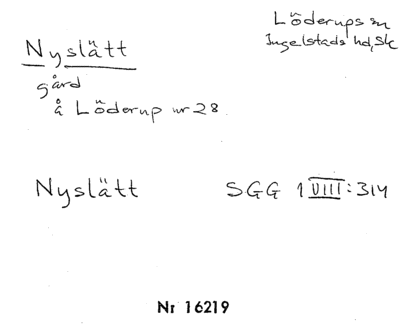 Löderups sn
Ingelstads hd, Sk
Nyslätt
gård
å Löderup nr 28
Nyslätt SGG 1 VIII:314
Nr 16219